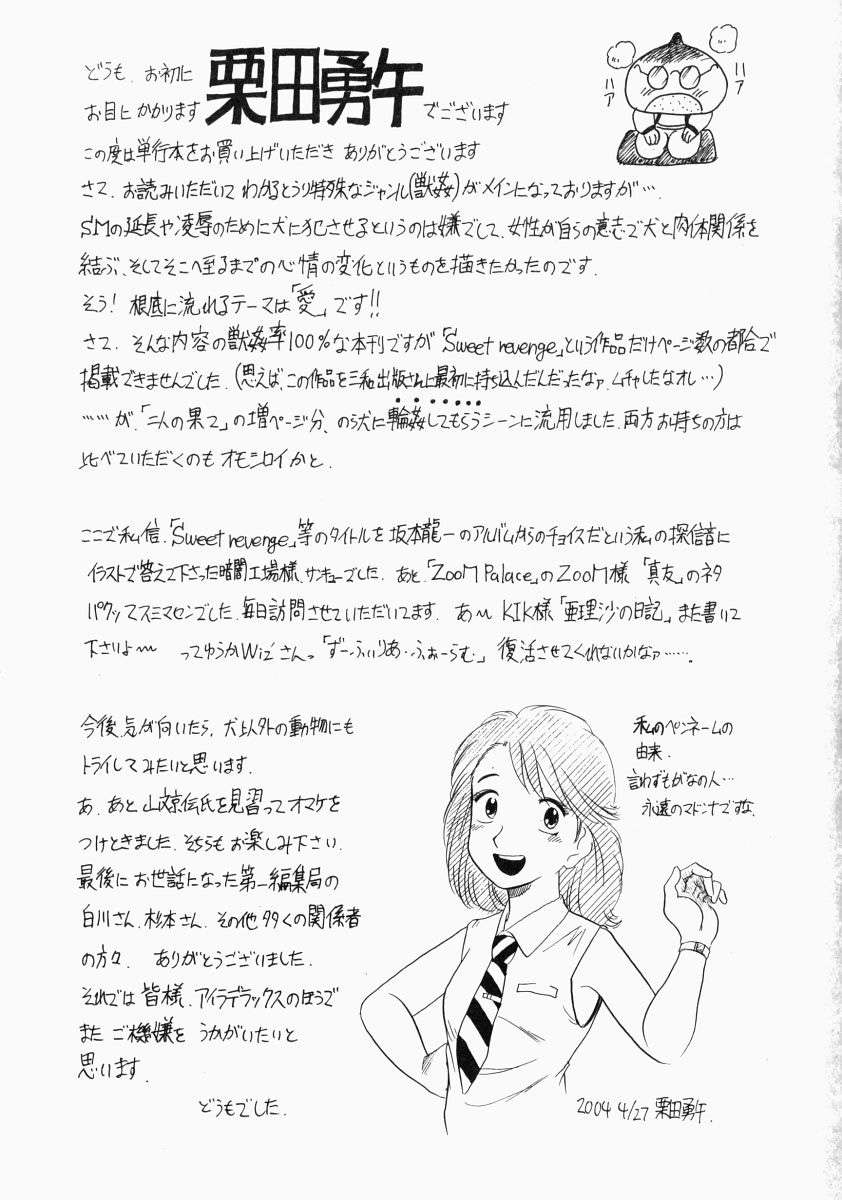 どうも、お初に
お目にかかります 栗田勇午 でございます
ハア
ハア
この度は単行本をお買い上げいただき ありがとうございます
さて、お読みいただいて わかるとうり特殊なジャンル(獣姦)がメインになっておりますが…、
SMの延長や凌辱のために犬に犯させるというのは嫌でして、女性が自らの意志で犬と肉体関係を
結ぶ、そしてそこへ至るまでの心情の変化というものを描きたかったのです。
そう! 根底に流れるテーマは「愛」です!!
さて、そんな内容の獣姦率100%な本刊ですが「Sweet revenge」という作品だけページ数の都合で
掲載できませんでした。(思えば、この作品を三和出版さんに最初に持ち込んだんだったなァ、ムチャしたなオレ…)
……が、「二人の果て」の増ページ分、のら犬に輪姦してもらうシーンに流用しました。両方お持ちの方は
比べていただくのもオモシロイかと。
ここで私信、「Sweet revenge」等のタイトルを坂本龍一のアルバムからのチョイスだという私の探信音に
イラストで答えて下さった暗闇工場様、サンキューでした。あと「ZooM Palace」のZooM様「真友」のネタ
パクッてスミマセンでした。毎日訪問させていただいてます。あ〜 KIK様「亜理沙の日記」また書いて
下さいよ〜 ってゆうかWiz'さんっ「ずーふぃりあ・ふぉーらむ」復活させてくれないかなァ……。
今後、気が向いたら、犬以外の動物にも
トライしてみたいと思います。
あ、あと 山文京伝氏を見習ってオマケを
つけときました。そちらもお楽しみ下さい。
最後に お世話になった第一編集局の
白川さん、杉本さん、その他多くの関係者
の方々、 ありがとうございました。
それでは皆様、アイラデラックスのほうで
また ご機嫌を うかがいたいと
思います。
どうもでした。
私のペンネームの
由来、
言わずもがなの人…
永遠のマドンナですな。
2004 4/27 栗田勇午。